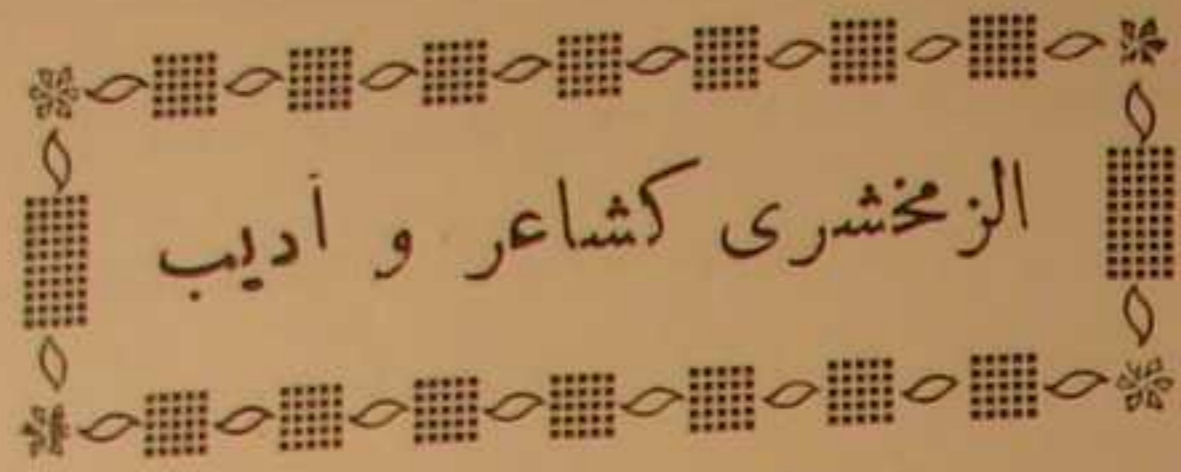 الزمخشرى كشاعر و أديب